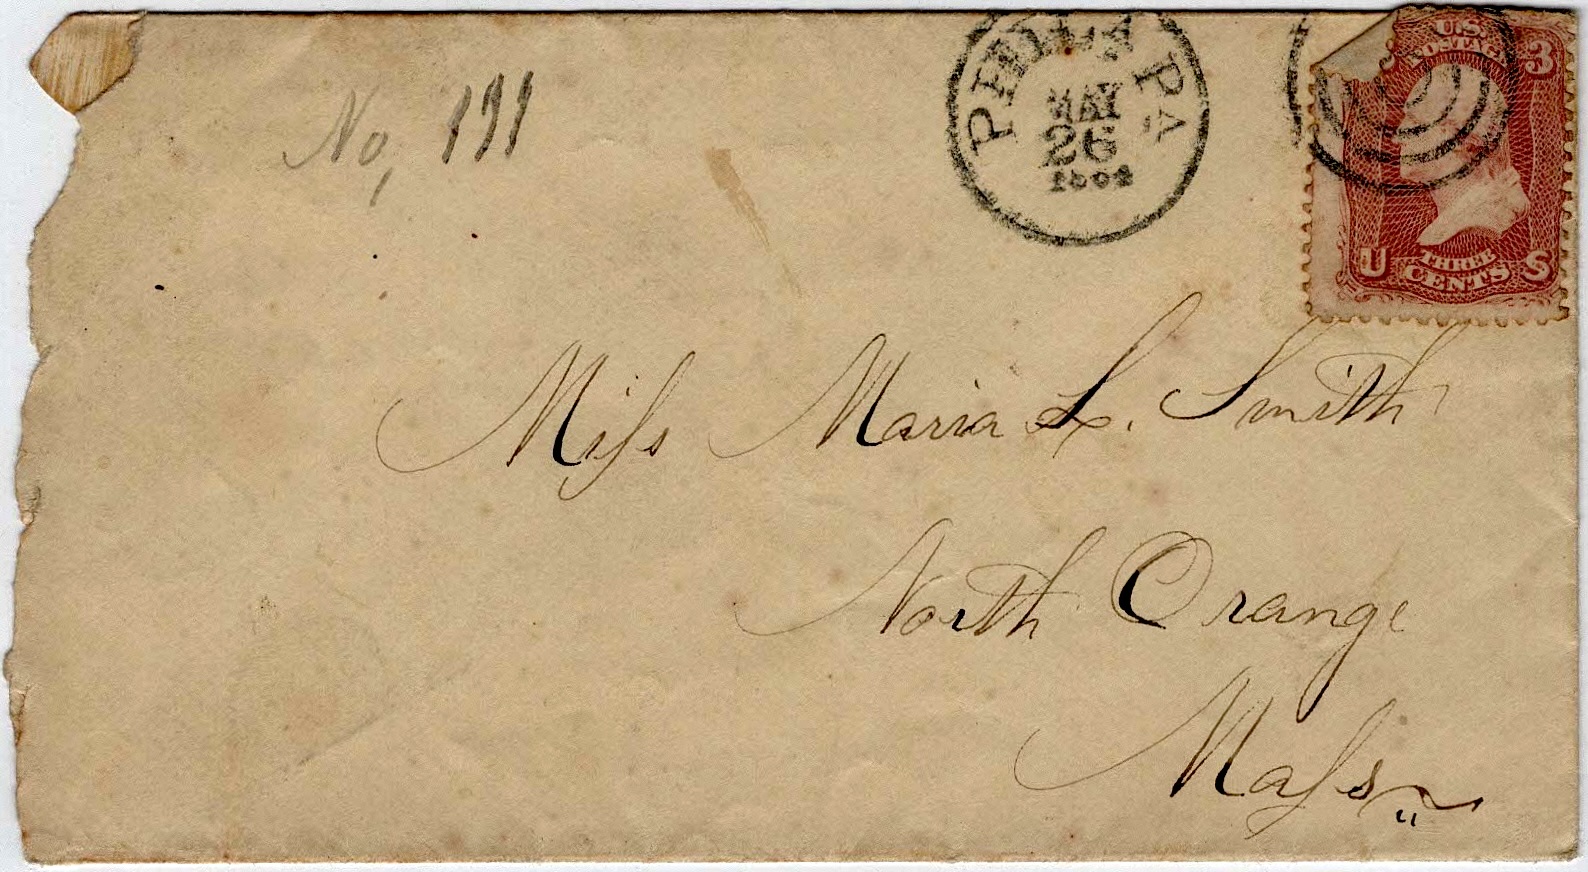 No, 191
PHILA PA
MAY
26
U.S.
POSTAGE
3
U THREE S
CENTS
Miſs Maria L. Smith
North Orange
Maſs